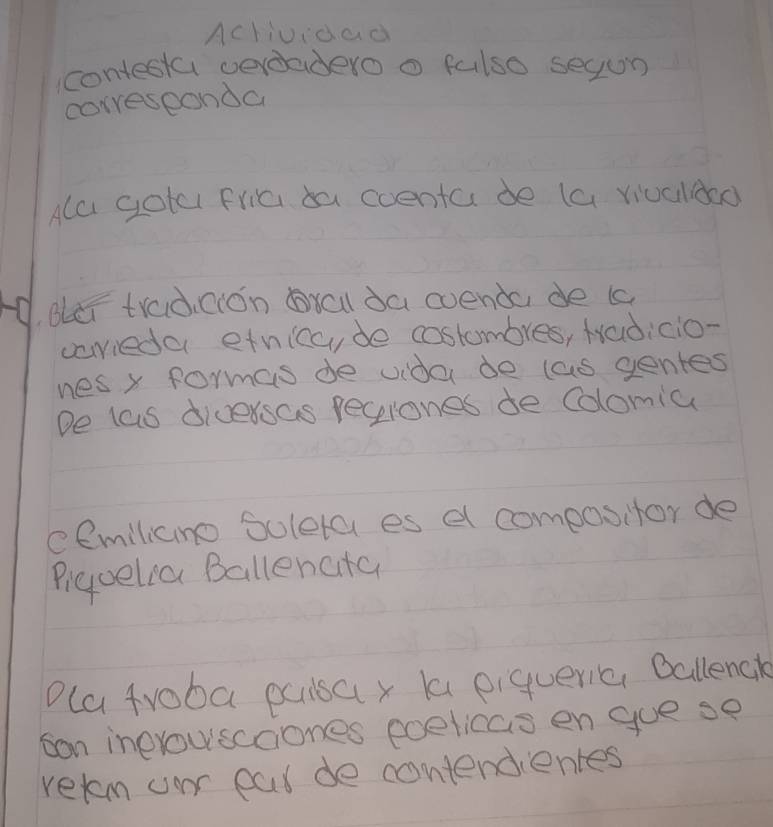 Actividad
contesta verdadero o falso segun
corresponda
A la gota fria da cuenta de la rivalidad
B la tradición oral da cuenda de la
varieda etnica, de costumbres, tradicio-
nes y formas de vida de las gentes
De las diversas regiones de Colomia
c emiliano Suleta es el compositor de
Piquelia Ballenata
D la troba paisa y la piqueria Ballenata
son inprouiscaciones poeticas en que se
retan unr par de contendientes